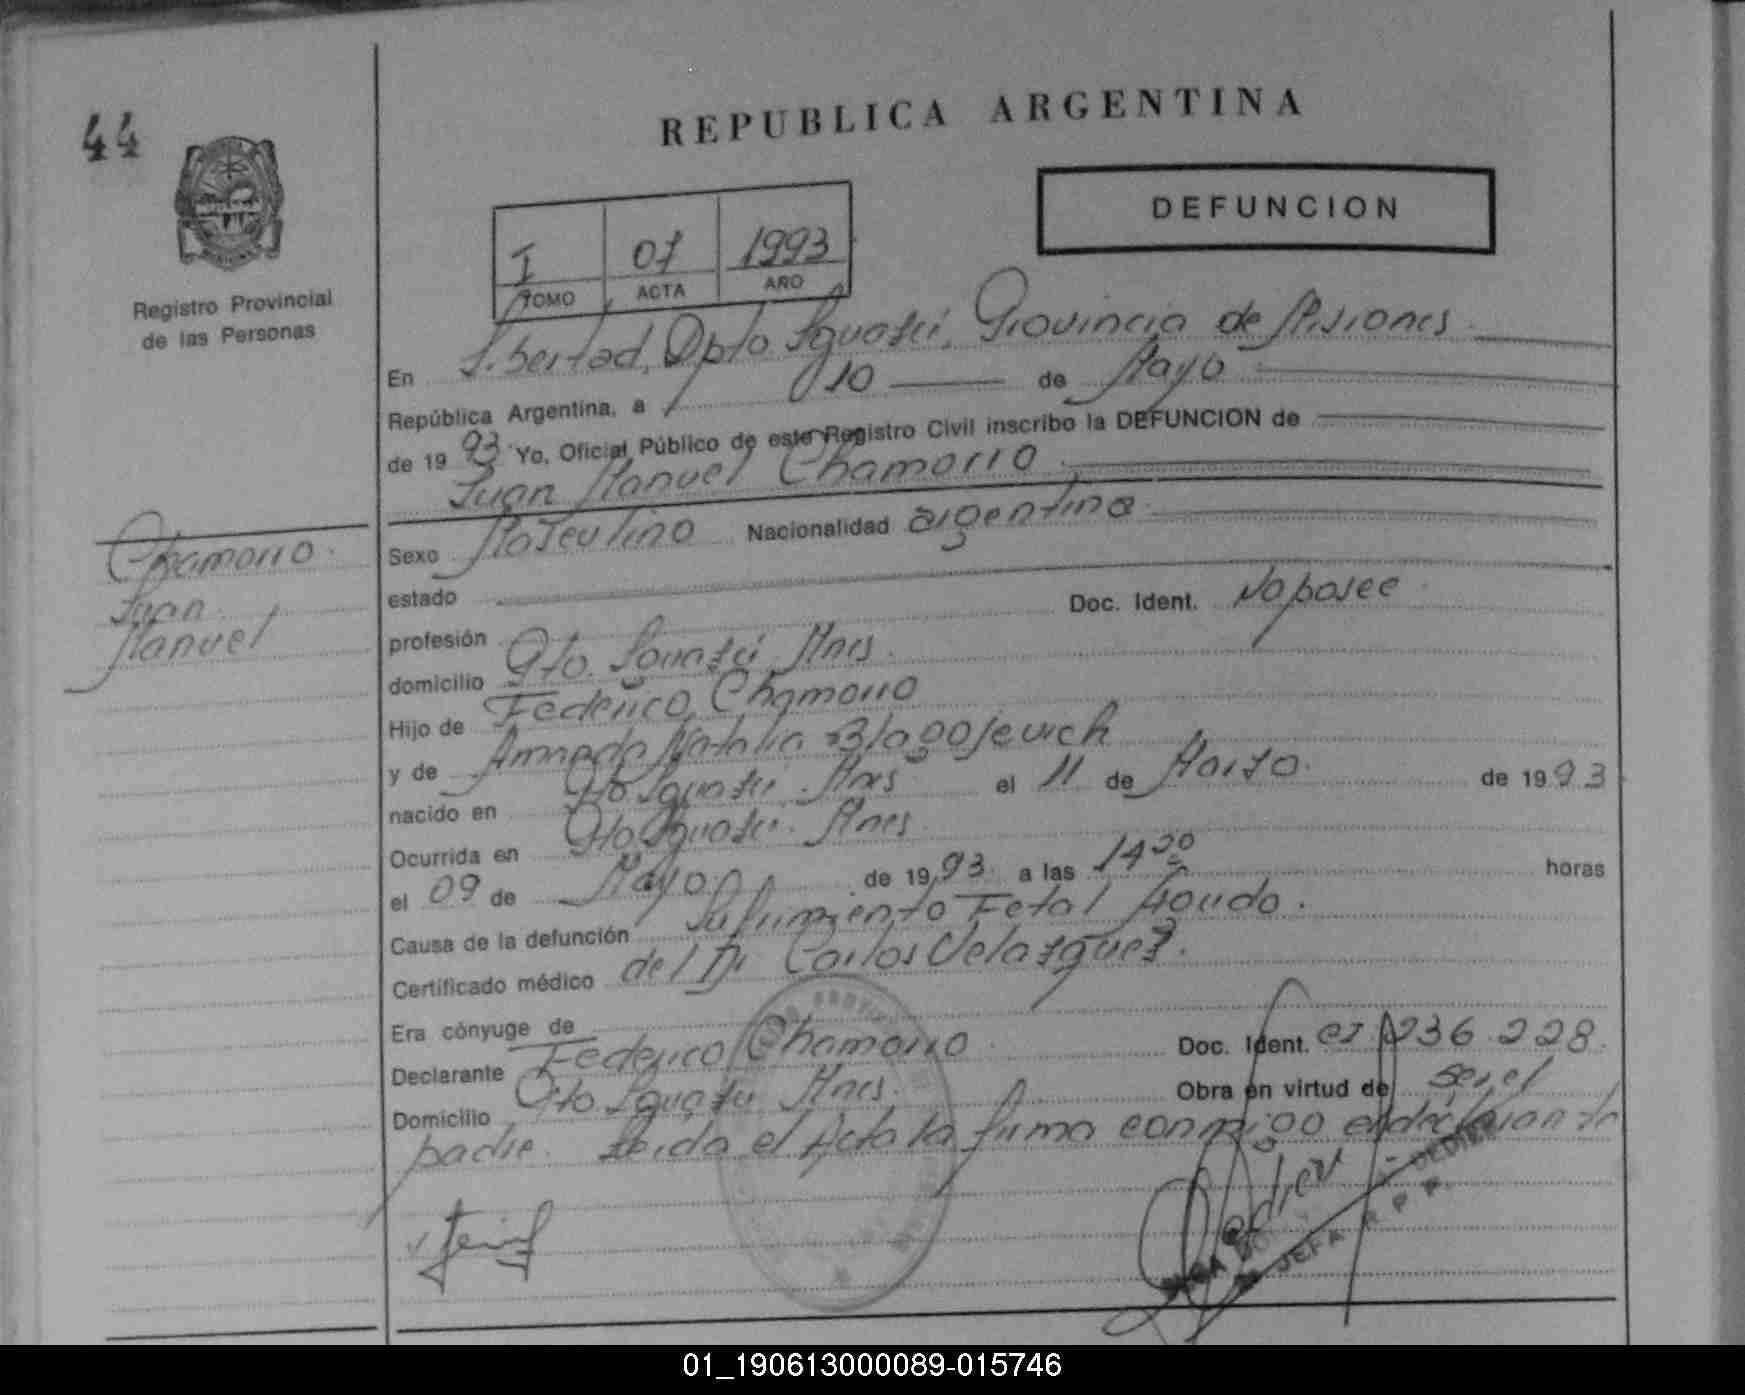 44
REPUBLICA ARGENTINA
DEFUNCION
I 07 1993
TOMO ACTA AÑO
Registro Provincial
de las Personas
En Libertad, Dpto Iguazú, Provincia de Misiones
República Argentina, a 10 de Mayo
de 1993 Yo, Oficial Público de este Registro Civil inscribo la DEFUNCION de
Juan Manuel Chamorro
Chamorro
Juan
Manuel
Sexo Masculino Nacionalidad argentina
estado
Doc. Ident. No posee
profesión
domicilio Pto. Iguazú Mnes.
Hijo de Federico Chamorro
y de Amada Natalia Blagojevich
nacido en Pto Iguazú. Mnes el 11 de Marzo de 1993
Ocurrida en Pto Iguazú. Mnes
el 09 de Mayo de 1993 a las 14 horas
Causa de la defunción Sufrimiento Fetal Agudo.
Certificado médico del Dr Carlos Velazquez.
Era cónyuge de
Declarante Federico Chamorro Doc. Ident. 236.228
Domicilio Pto Iguazú Mnes. Obra en virtud de ser el
padre. Leida el Acta la firma conmigo el declarante
JEFA R P P.
01_190613000089-015746